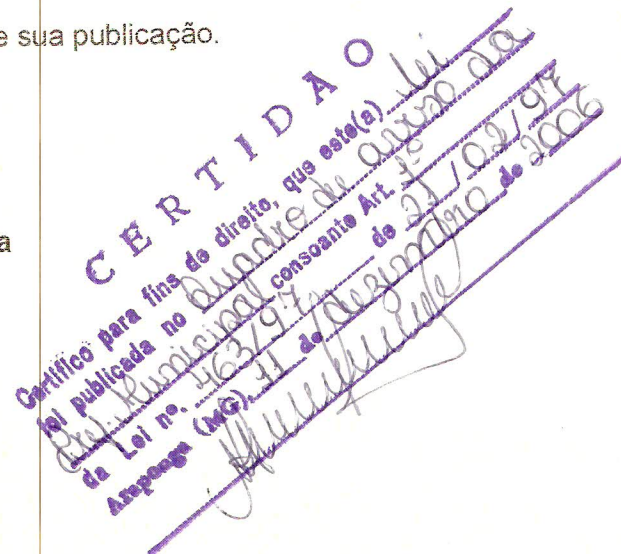 e sua publicação.
a
CERTIDÃO
Certifico para fins de direito, que este(a) lei
foi publicada no Quadro de aviso da
Pref. Municipal consoante Art. 1º
da Lei nº. 463/97 de 21/02/97
Araponga (MG), 11 de dezembro de 2006